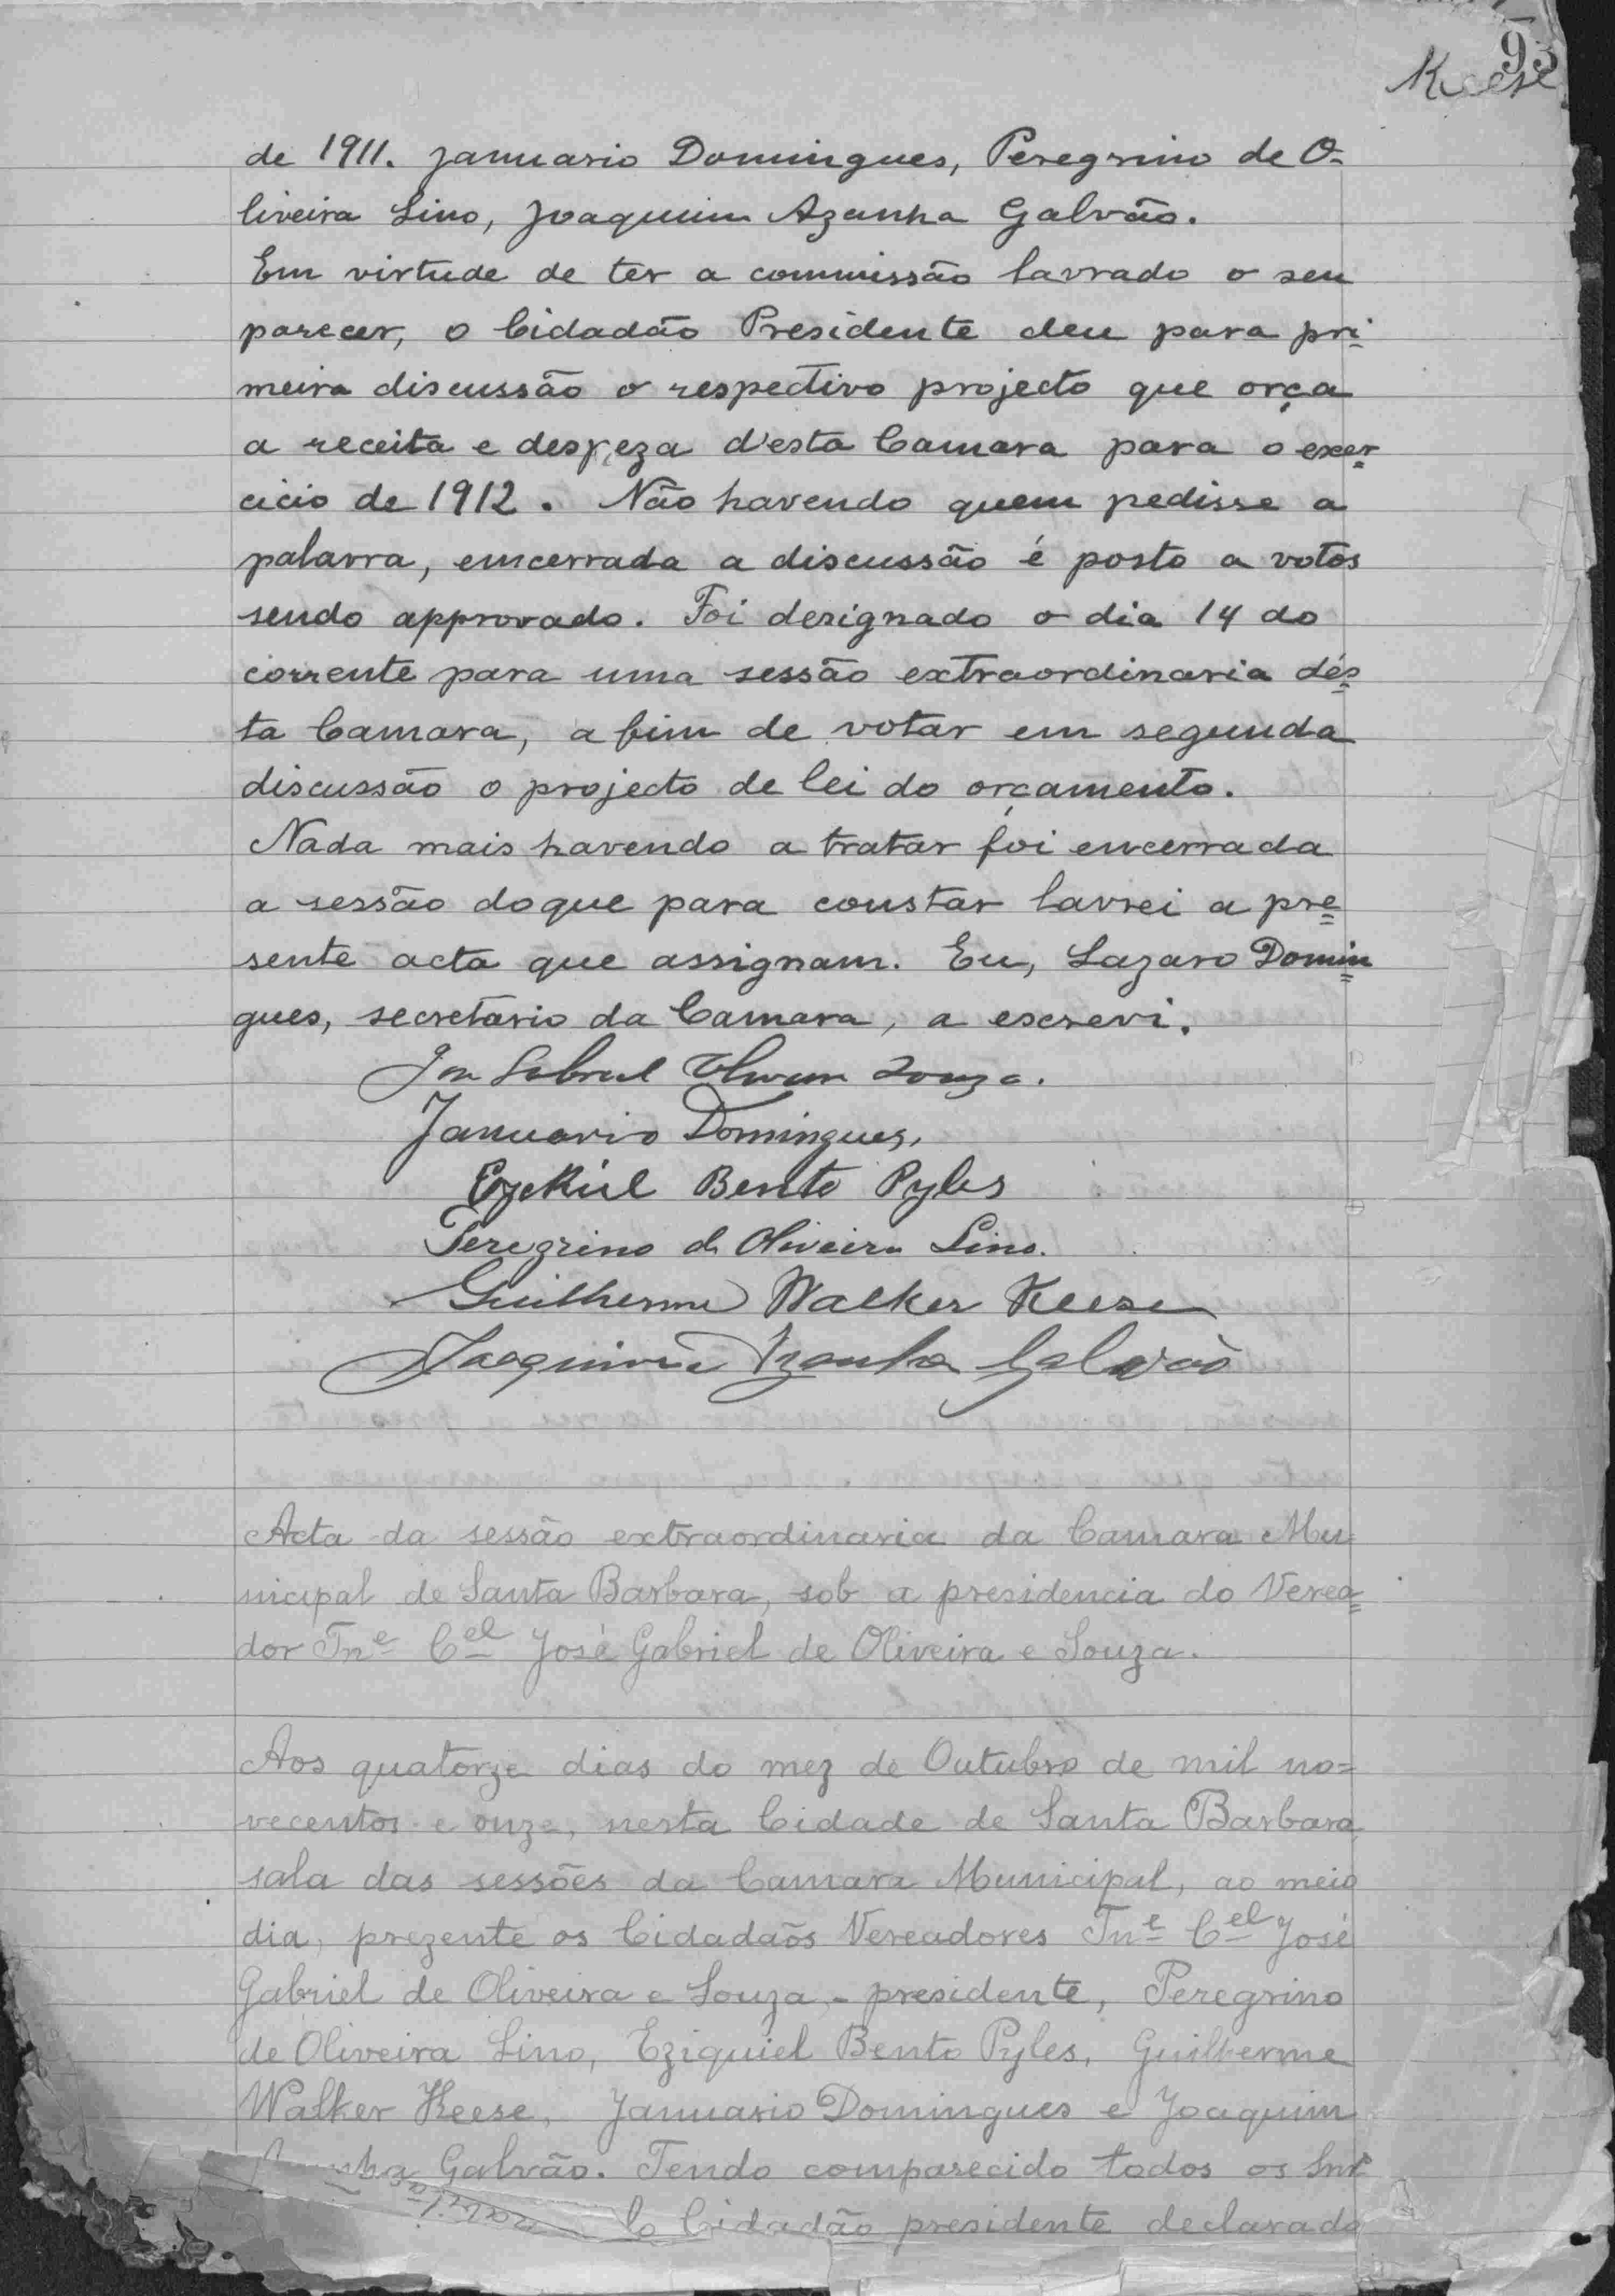 93
Keese
de 1911. Januario Domingues, Peregrino de O-
liveira Lino, Joaquim Azanha Galvão.
Em virtude de ter a commissão lavrado o seu
parecer, o Cidadão Presidente deu para pri-
meira discussão o respectivo projecto que orça
a receita e despeza d'esta Camara para o exer=
cicio de 1912. Não havendo quem pedisse a
palavra, emcerrada a discussão é posto a votos
sendo approvado. Foi designado o dia 14 do
corrente para uma sessão extraordinaria dés=
ta Camara, a fim de votar em segunda
discussão o projecto de lei do orçamento.
Nada mais havendo a tratar foi encerrada
a sessão do que para constar lavrei a pre=
sente acta que assignam. Eu, Lazaro Domin=
gues, secretario da Camara, a escrevi.
Souza.
Januario Domingues,
Ezekiel Bento Pyles
Peregrino de Oliveira Lino.
Guilherme Walker Keese
Joaquim Azanha Galvão
Acta da sessão extraordinaria da Camara Mu=
nicipal de Santa Barbara, sob a presidencia do Verea=
dor Tne Cel José Gabriel de Oliveira e Souza.
Aos quatorze dias do mez de Outubro de mil no=
vecentos e onze, nesta Cidade de Santa Barbara,
sala das sessões da Camara Municipal, ao meio
dia, prezente os Cidadãos Vereadores Tne Cel José
Gabriel de Oliveira e Souza, - presidente, Peregrino
de Oliveira Lino, Eziquiel Bento Pyles, Guilherme
Walker Keese, Januario Domingues e Joaquim
Galvão. Tendo comparecido todos os Snrs
Cidadão presidente declarada